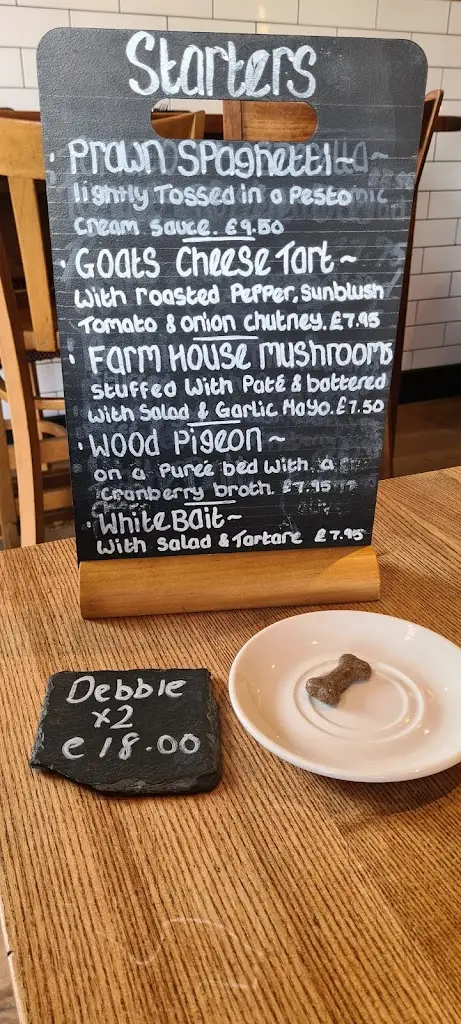 Starters
· Prawn Spaghetti ~
lightly Tossed in a Pesto
Cream sauce. £9.50
· Goats Cheese Tart ~
With roasted Pepper, Sunblush
Tomato & onion chutney. £7.95
· Farm House Mushrooms
stuffed With Paté & battered
With Salad & Garlic Mayo. £7.50
· Wood Pigeon ~
on a Pureé bed With a
Cranberry broth. £7.95
· White Bait ~
With Salad & Tartare £7.95
Debble
x2
@ 18.00